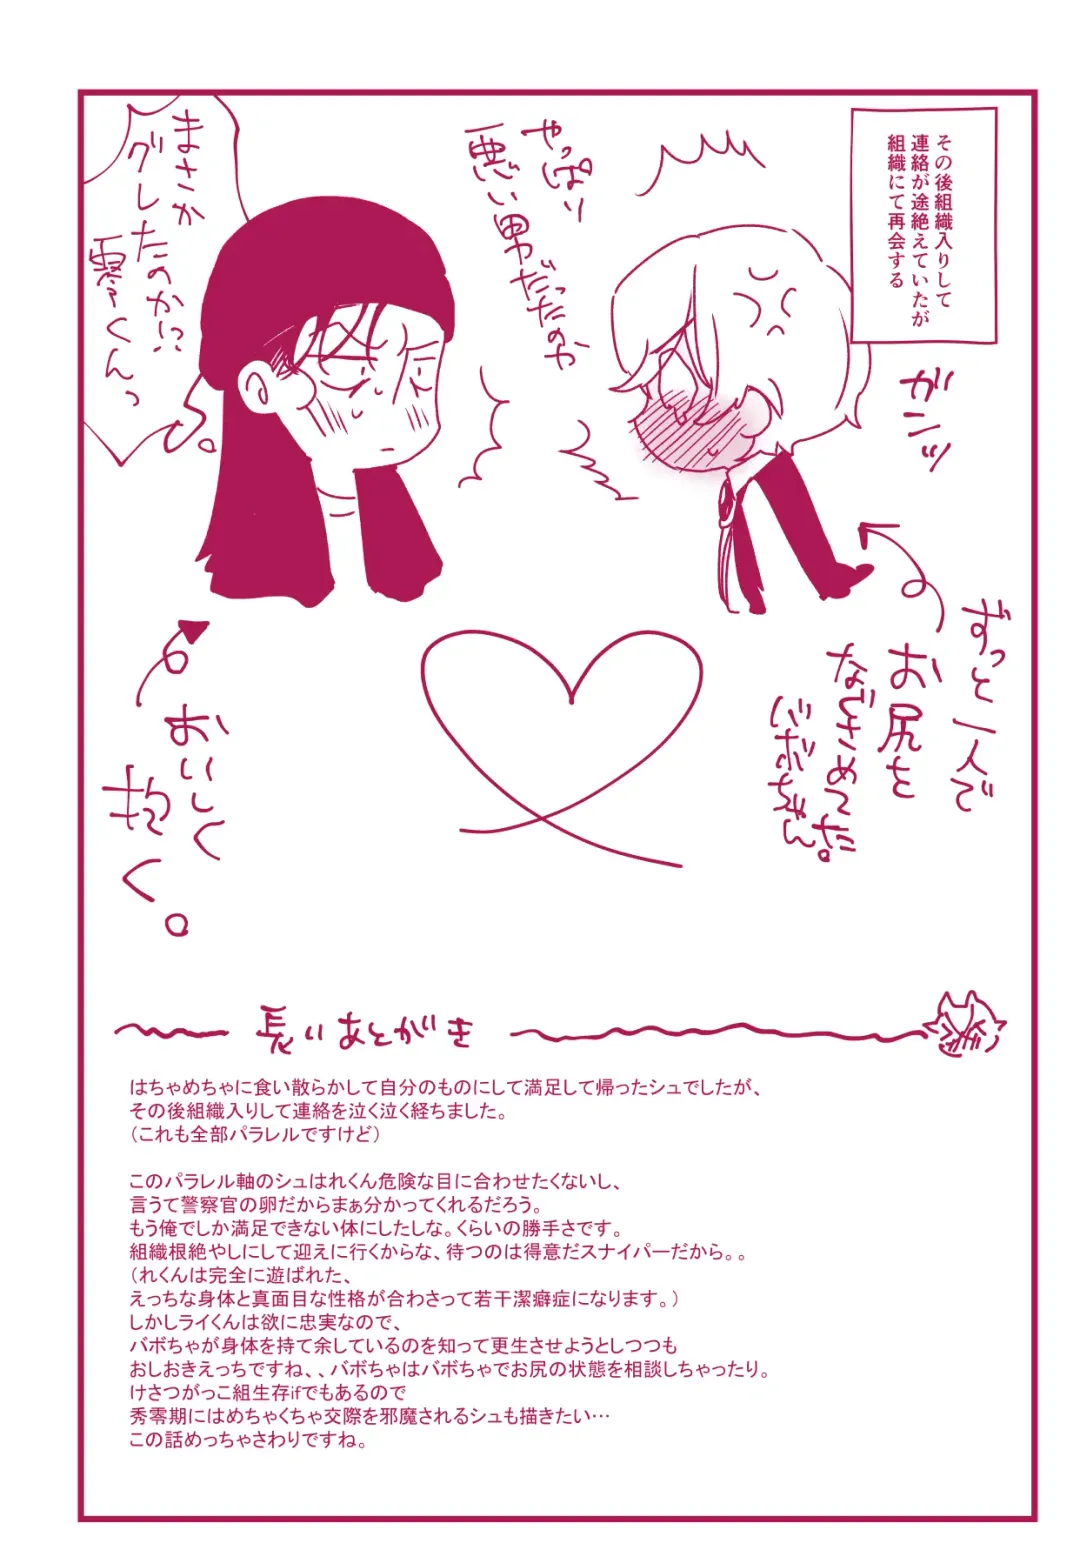 その後組織入りして
連絡が途絶えていたが
組織にて再会する
ガンッ
やっぱり
悪い男だったのか
まさか
グレたのか!?
零くんっ
ずっと一人で
お尻を
なぐさめてた
バボちゃん。
おいしく
抱く。
長いあとがき
はちゃめちゃに食い散らかして自分のものにして満足して帰ったシュでしたが、
その後組織入りして連絡を泣く泣く経ちました。
（これも全部パラレルですけど）
このパラレル軸のシュはれくん危険な目に合わせたくないし、
言うて警察官の卵だからまぁ分かってくれるだろう。
もう俺でしか満足できない体にしたしな。くらいの勝手さです。
組織根絶やしにして迎えに行くからな、待つのは得意だスナイパーだから。。
（れくんは完全に遊ばれた、
えっちな身体と真面目な性格が合わさって若干潔癖症になります。）
しかしライくんは欲に忠実なので、
バボちゃが身体を持て余しているのを知って更生させようとしつつも
おしおきえっちですね、、バボちゃはバボちゃでお尻の状態を相談しちゃったり。
けさつがっこ組生存ifでもあるので
秀零期にはめちゃくちゃ交際を邪魔されるシュも描きたい…
この話めっちゃさわりですね。